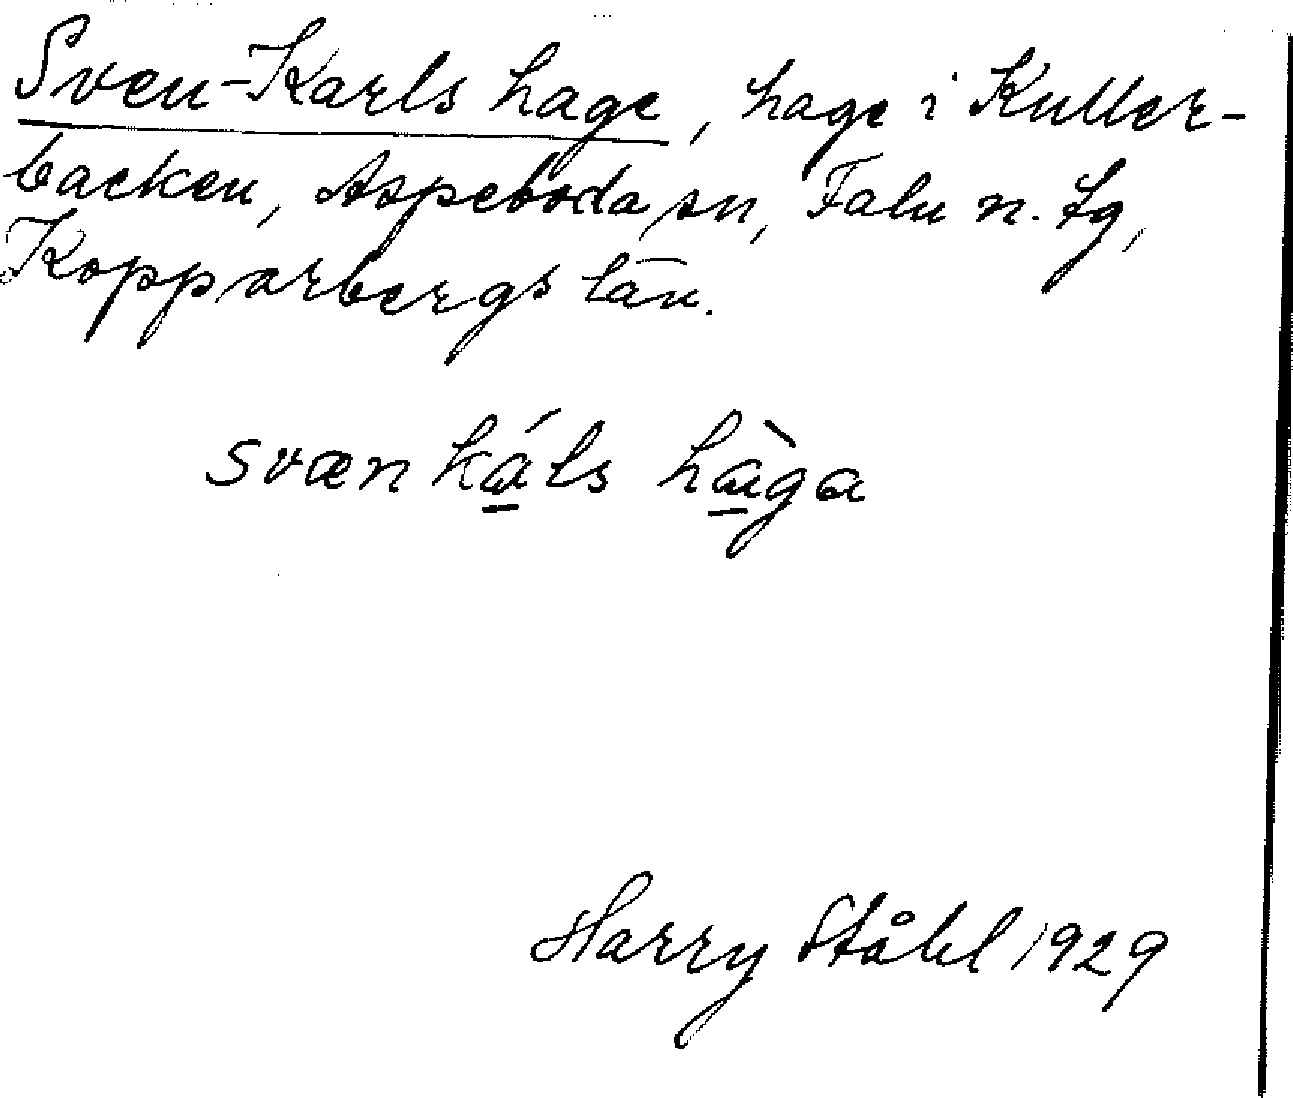 Sven-Karls hage, hage i Kuller-
backen, Aspeboda sn, Falu n. tg,
Kopparbergs län.
svæn ká̱ls hà̱ga
Harry Ståhl 1929